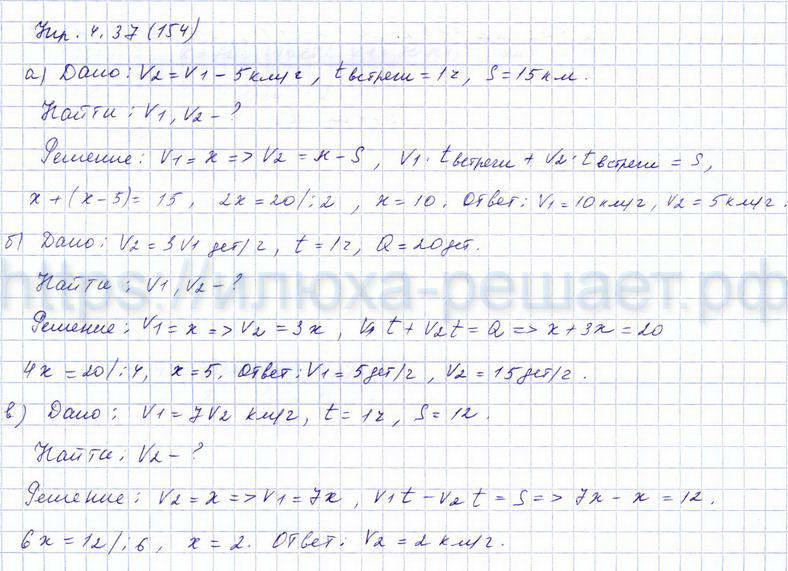 Упр. 4.37 (154)
а) Дано: V2 = V1 - 5 км/ч, t встречи = 1ч, S = 15 км.
Найти: V1, V2 - ?
Решение: V1 = x => V2 = x - 5, V1 · t встречи + V2 · t встречи = S,
x + (x - 5) = 15, 2x = 20 /:2, x = 10. Ответ: V1 = 10 км/ч, V2 = 5 км/ч.
б) Дано: V2 = 3V1 дет/ч, t = 1ч, Q = 20 дет.
Найти: V1, V2 - ?
https://илюха-решает.рф
Решение: V1 = x => V2 = 3x, V1 t + V2 t = Q => x + 3x = 20
4x = 20 /:4, x = 5. Ответ: V1 = 5 дет/ч, V2 = 15 дет/ч.
в) Дано: V1 = 7V2 км/ч, t = 1ч, S = 12.
Найти: V2 - ?
Решение: V2 = x => V1 = 7x, V1 t - V2 t = S => 7x - x = 12.
6x = 12 /:6, x = 2. Ответ: V2 = 2 км/ч.